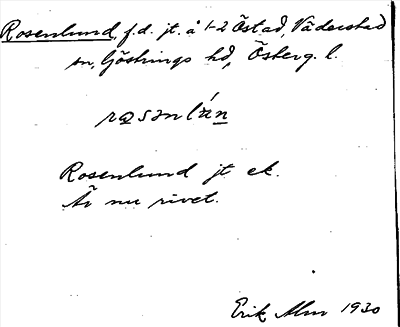 Rosenlund, f.d. jt. å 1-2 Östad, Väderstad
sn, Göstrings hd, Österg. l.
rosənlún
Rosenlund jt ek.
Är nu rivet.
Erik Alm 1930